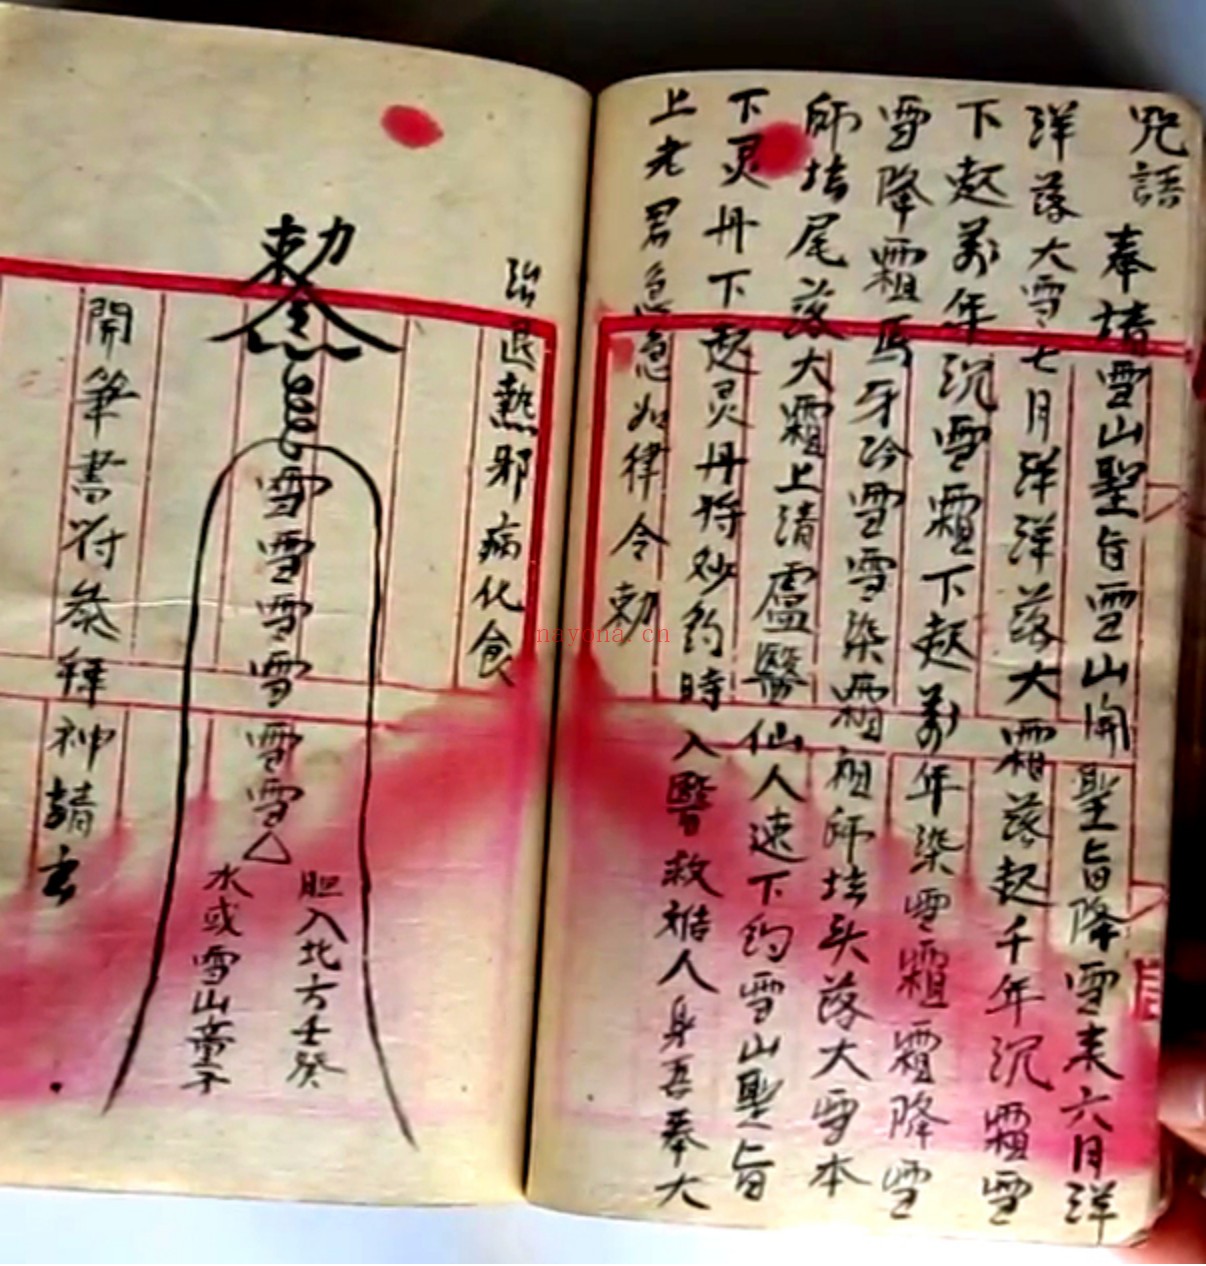 咒語
奉请雪山聖旨雪山闹聖旨降雪来六月洋
洋落大雪七月洋洋落大霜落起千年沉霜雪
下起万年沉雪霜下起万年染雪霜霜降雪
雪降霜馬牙冷雪雪染霜祖师坛头落大雪本
師坛尾落大霜上清盧醫仙人速下约雪山聖旨
下灵丹下起灵丹将妙约時入醫救人身吾奉大
上老君急急如律令勅
治退熱邪病化食
勅令
雪
雪
雪
雪
雪
雪
胆入北方壬癸
水或雪山童子
開筆書符叅拜神請去
mayona.cn